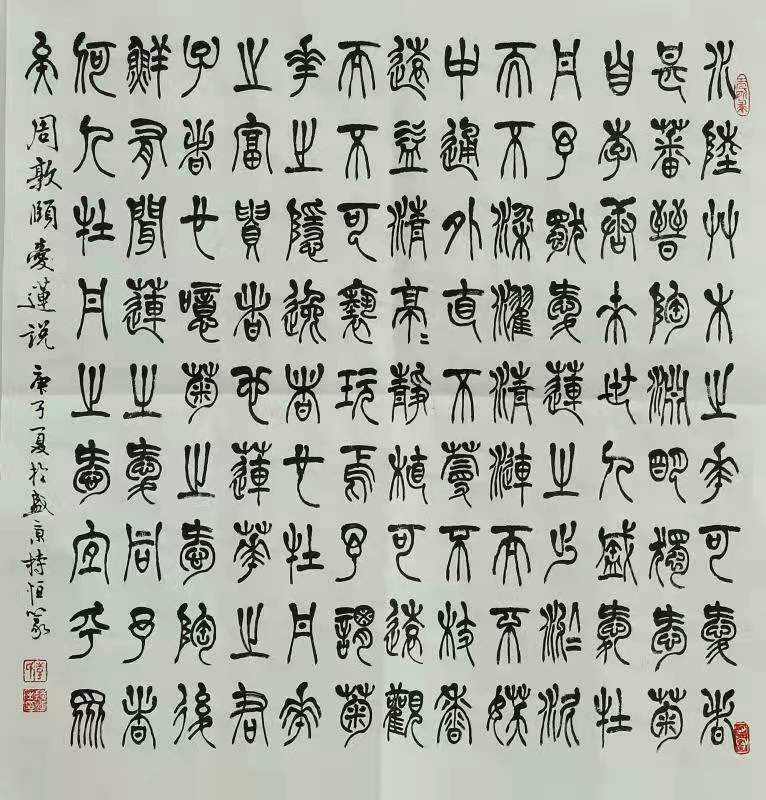 水陸艸木之華可愛者
甚蕃晉陶淵明獨愛菊
自李唐來世人盛愛牡
丹予獨愛蓮之出淤泥
而不染濯清漣而不妖
中通外直不蔓不枝香
遠益清亭〻靜植可遠觀
而不可褻玩焉予謂菊
華之隱逸者也牡丹華
之富貴者也蓮華之君
子者也噫菊之愛陶後
鮮有聞蓮之愛同予者
何人牡丹之愛宜乎眾
矣 周敦頤愛蓮說 庚子夏於盛京持恒篆